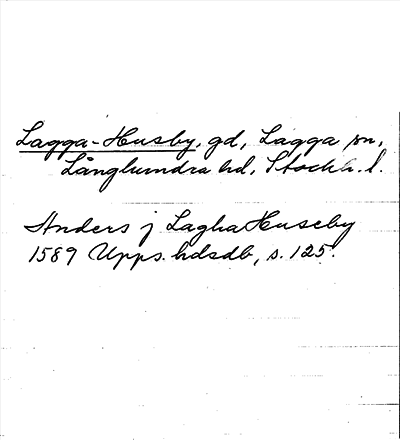 Lagga-Husby, gd, Lagga sn,
Långhundra hd, Stockh. l.
Anders j Lagha Huseby
1589 Upps. hdsdb, s. 125.